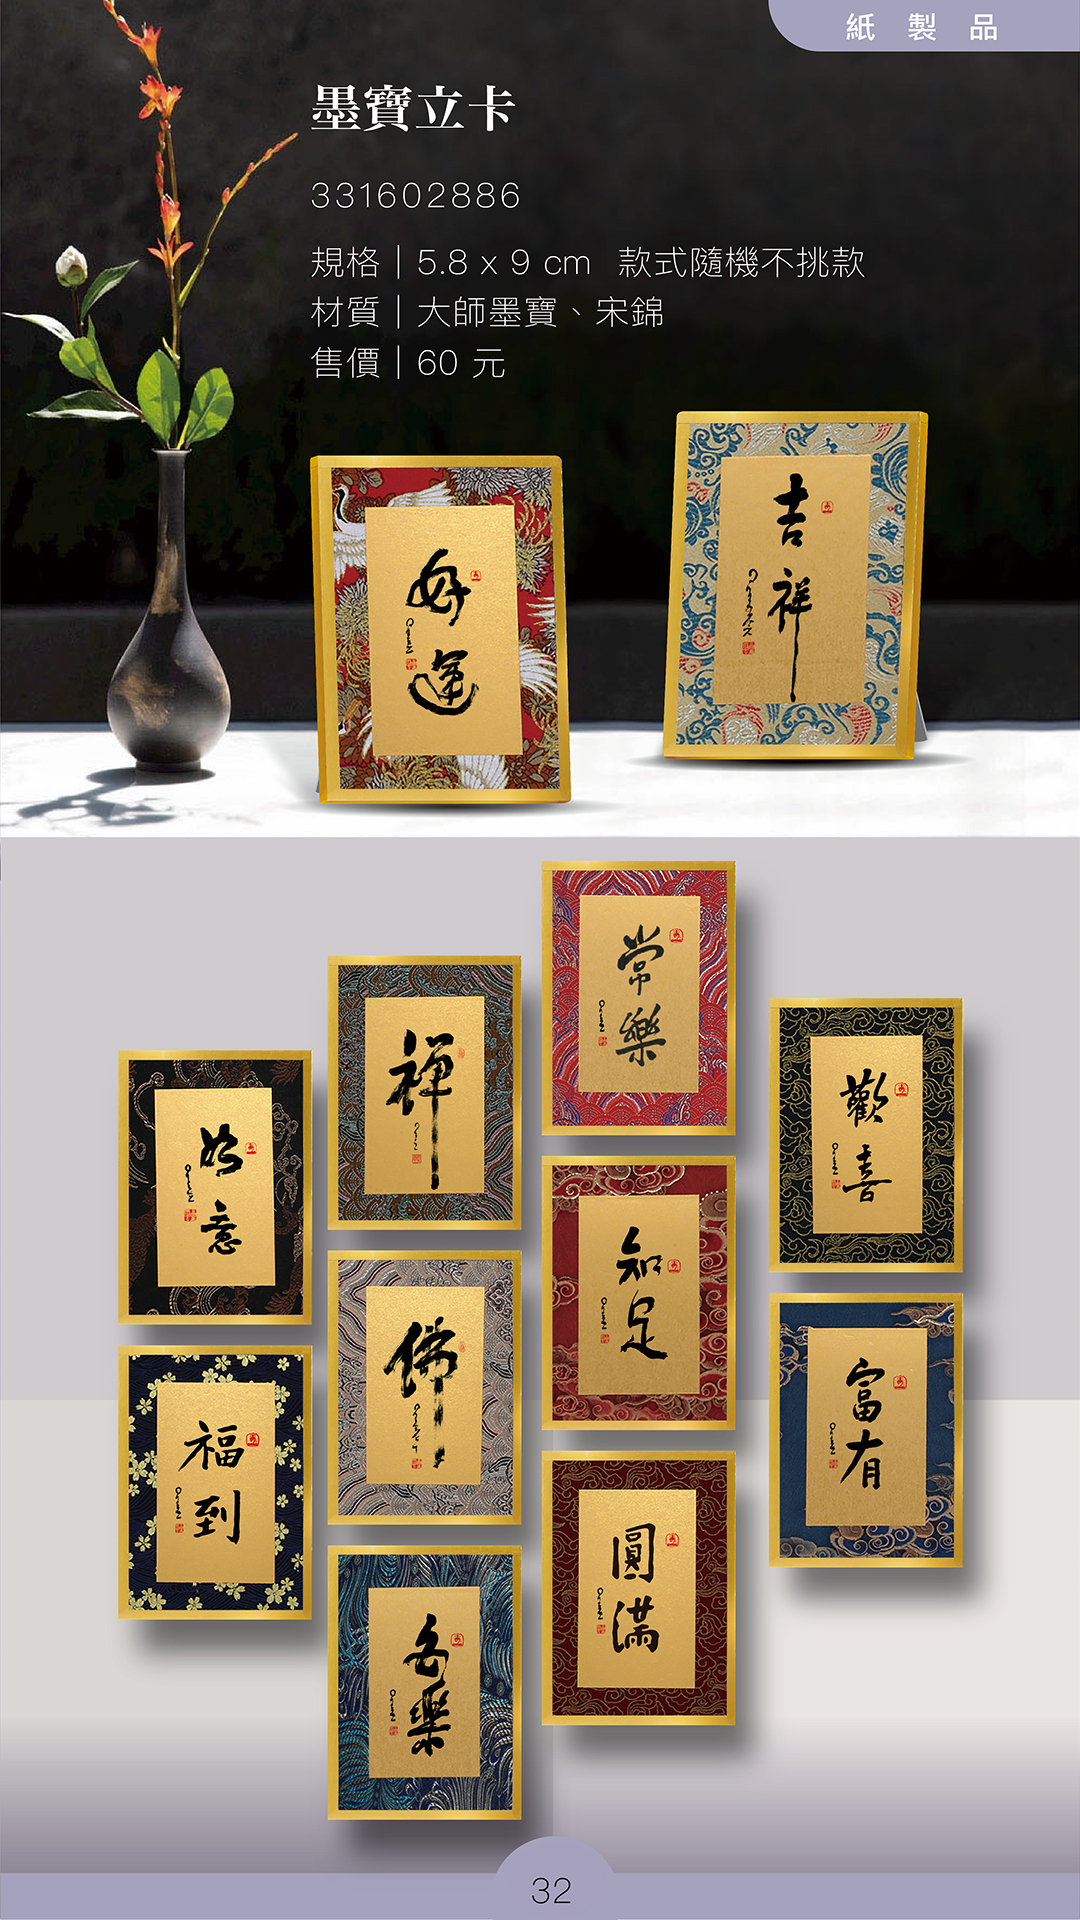 紙製品
墨寶立卡
331602886
規格｜5.8 x 9 cm 款式隨機不挑款
材質｜大師墨寶、宋錦
售價｜60 元
好運
吉祥
常樂
禪
歡喜
如意
知足
佛
富有
福到
圓滿
安樂
32